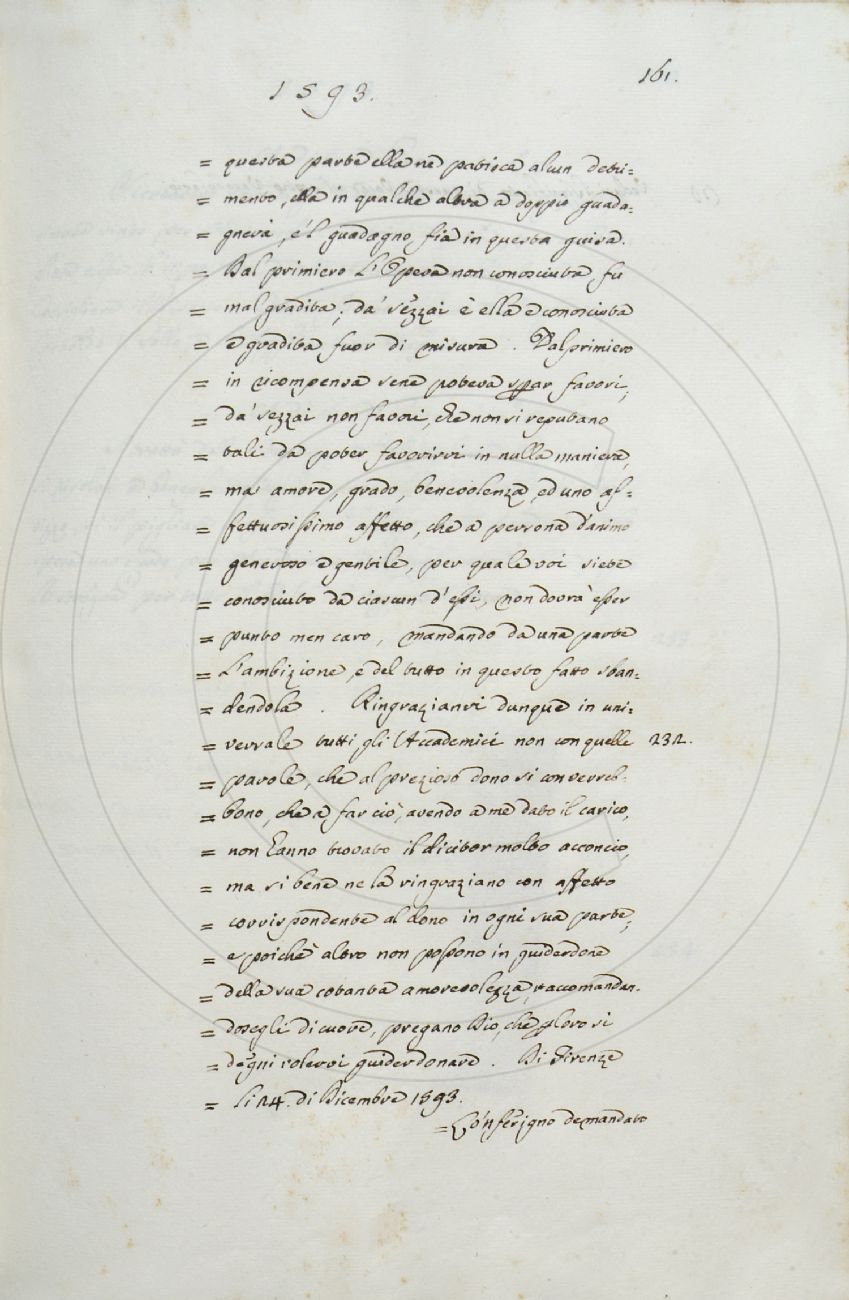 1593.
161.
= questa parte ella ne patisca alcun detri=
= mento, ella in qualche altra a doppio guada=
= gnerà, e'l guadagno fia in questa guisa.
= Dal primiero L'Opera non conosciuta, fu
= mal gradita; da' sezzai è ella e conosciuta
= e gradita fuor di misura. Dal primiero
= in ricompensa sene poteva sperar favori;
= da' sezzai non favori, che non si reputano
= tali da poter favorirvi in nulla maniera,
= ma amore, grado, benevolenza, ed uno af=
= fettuosissimo affetto, che a persona d'animo
= generoso e gentile, per quale voi siete
= conosciuto da ciascun d'essi, non dovrà esser
= punto men caro, mandando da una parte
= L'ambizione, e del tutto in questo fatto sban=
= dendola. Ringrazianvi dunque in uni=
= versale tutti gli Accademici non con quelle 232.
= parole, che al prezioso dono si converreb=
= bono, che a far ciò, avendo a me dato il carico,
= non hanno trovato il dicitor molto acconcio,
= ma si bene ne la ringraziano con affetto
= corrispondente al dono in ogni sua parte;
= e poichè altro non possono in guiderdone
= della sua cotanta amorevolezza, raccomandan=
= dosegli di cuore, pregano Dio, che p loro si
= degni volervi guiderdonare. Di Firenze
= li 24. di Dicembre 1593.
= Lo'nferigno de mandato